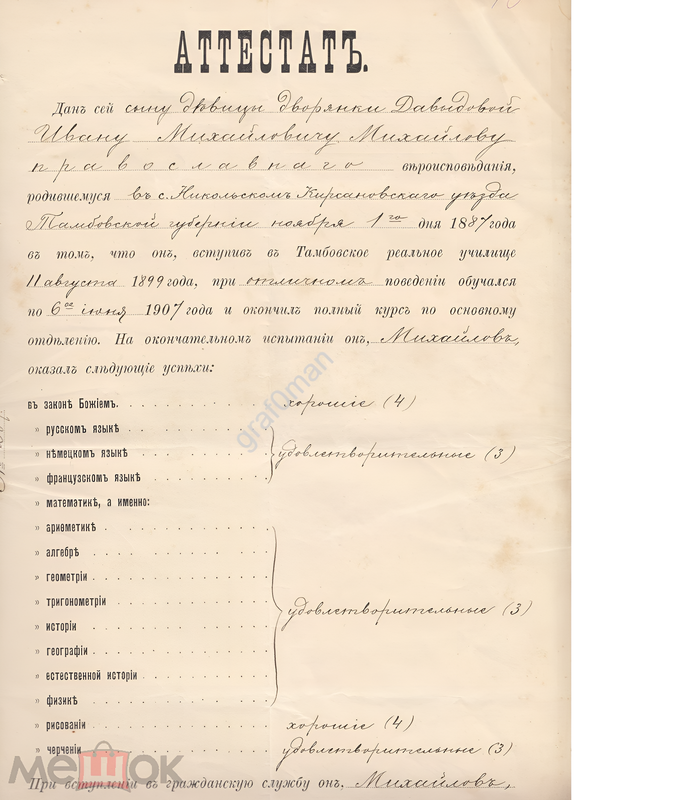 АТТЕСТАТЪ.
Данъ сей сыну дѣвицы дворянки Давыдовой
Ивану Михайловичу Михайлову
православнаго вѣроисповѣданія,
родившемуся въ с. Никольскомъ Кирсановскаго уѣзда
Тамбовской губерніи ноября 1го дня 1887 года
въ томъ, что онъ, вступивъ въ Тамбовское реальное училище
11 августа 1899 года, при отличномъ поведеніи обучался
по 6ое іюня 1907 года и окончилъ полный курсъ по основному
отдѣленію. На окончательномъ испытаніи онъ, Михайловъ,
оказалъ слѣдующіе успѣхи:
въ законѣ Божіемъ. хорошіе (4)
» русскомъ языкѣ
» нѣмецкомъ языкѣ удовлетворительные (3)
» французскомъ языкѣ
» математикѣ, а именно:
» ариѳметикѣ
» алгебрѣ
» геометріи
» тригонометріи удовлетворительные (3)
» исторіи
» географіи
» естественной исторіи
» физикѣ
» рисованіи хорошіе (4)
» черченіи удовлетворительные (3)
При вступленіи въ гражданскую службу онъ, Михайловъ,
graf0man
мешок